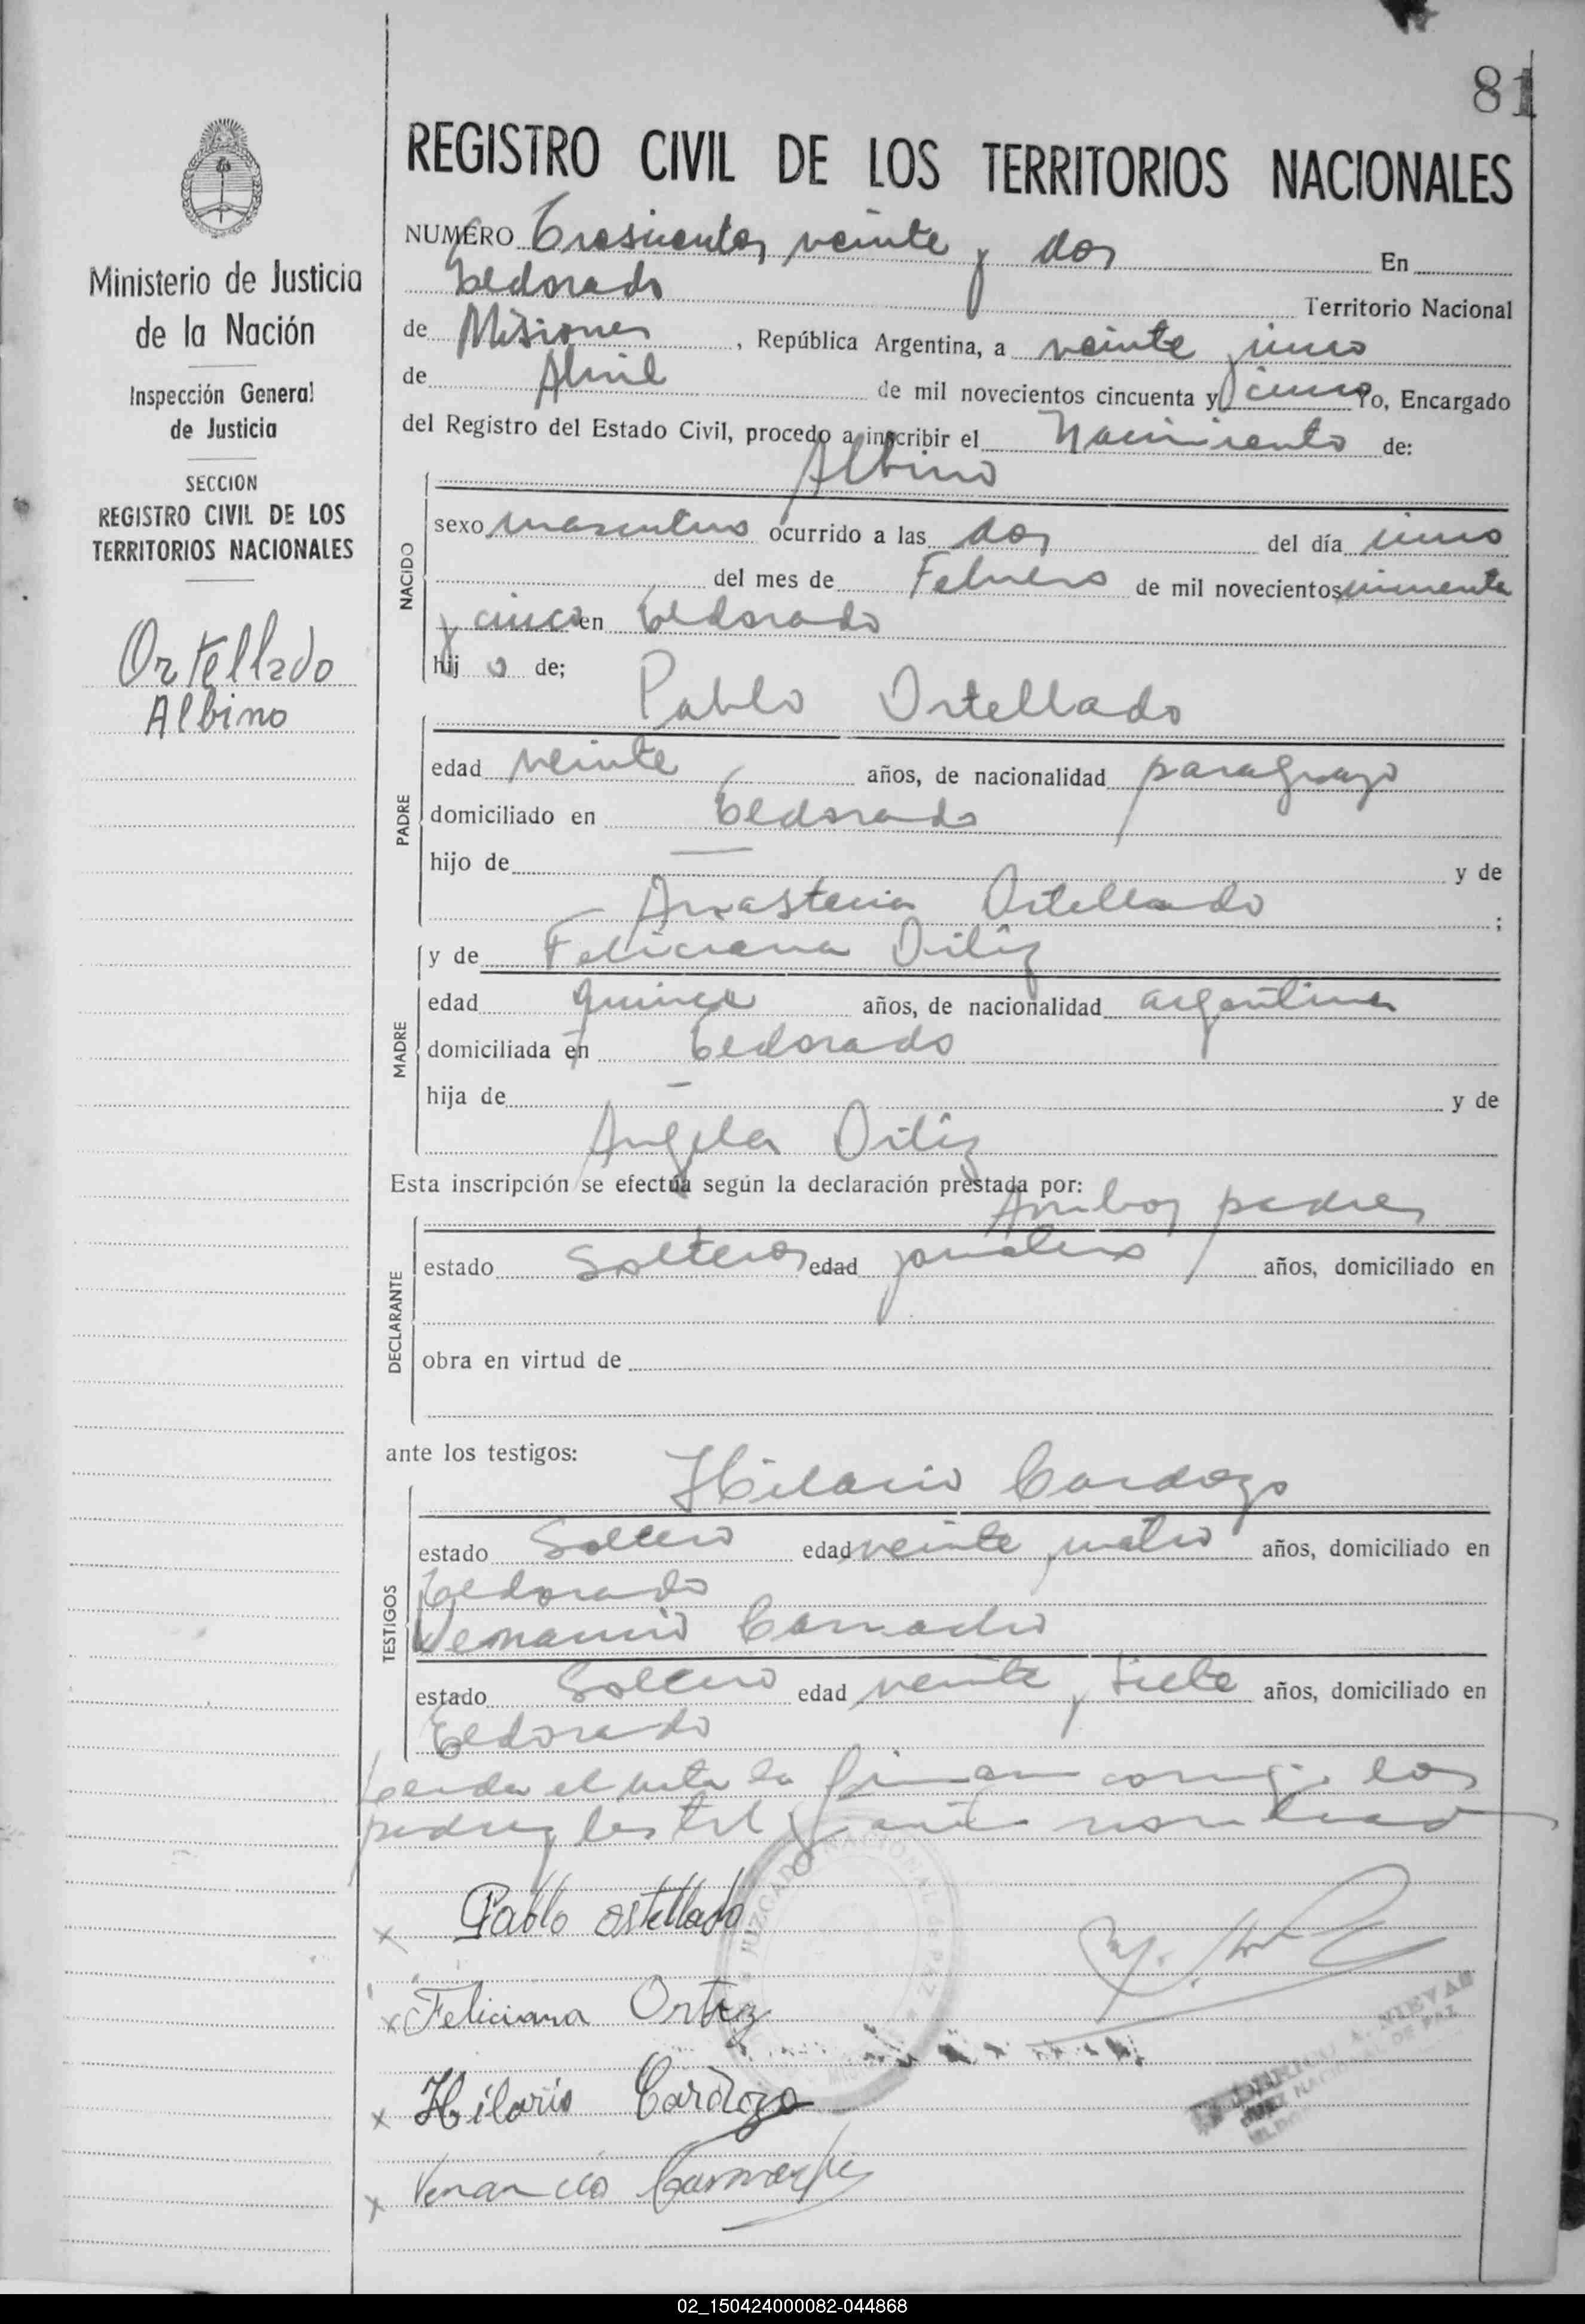 81
REGISTRO CIVIL DE LOS TERRITORIOS NACIONALES
Ministerio de Justicia
de la Nación
Inspección General
de Justicia
SECCION
REGISTRO CIVIL DE LOS
TERRITORIOS NACIONALES
Ortellado
Albino
NUMERO Trescientos veinte y dos En
Eldorado Territorio Nacional
de Misiones, República Argentina, a veinte y cinco
de Abril de mil novecientos cincuenta y cinco Yo, Encargado
del Registro del Estado Civil, procedo a inscribir el Nacimiento de:
Albino
NACIDO
sexo masculino ocurrido a las dos del día cinco
del mes de Febrero de mil novecientos cincuenta
y cinco en Eldorado
hijo de;
Pablo Ortellado
PADRE
edad veinte años, de nacionalidad paraguayo
domiciliado en Eldorado
hijo de — y de
Anastacia Ortellado ;
y de Feliciana Ortiz
MADRE
edad quince años, de nacionalidad argentina
domiciliada en Eldorado
hija de — y de
Angela Ortiz
Esta inscripción se efectúa según la declaración prestada por:
Ambos padres
DECLARANTE
estado Solteros edad jornalero años, domiciliado en
obra en virtud de
ante los testigos:
Hilario Cardozo
TESTIGOS
estado Soltero edad veinte y cuatro años, domiciliado en
Eldorado
Venancio Camacho
estado Soltero edad veinte y siete años, domiciliado en
Eldorado
Leida el acta la firman conmigo los
padres y los
Pablo Ortellado
Feliciana Ortiz
Hilario Cardozo
Venancio Camacho
JUZGADO NACIONAL DE PAZ
NIEVAS
JUEZ NACIONAL DE PAZ
02_150424000082-044868